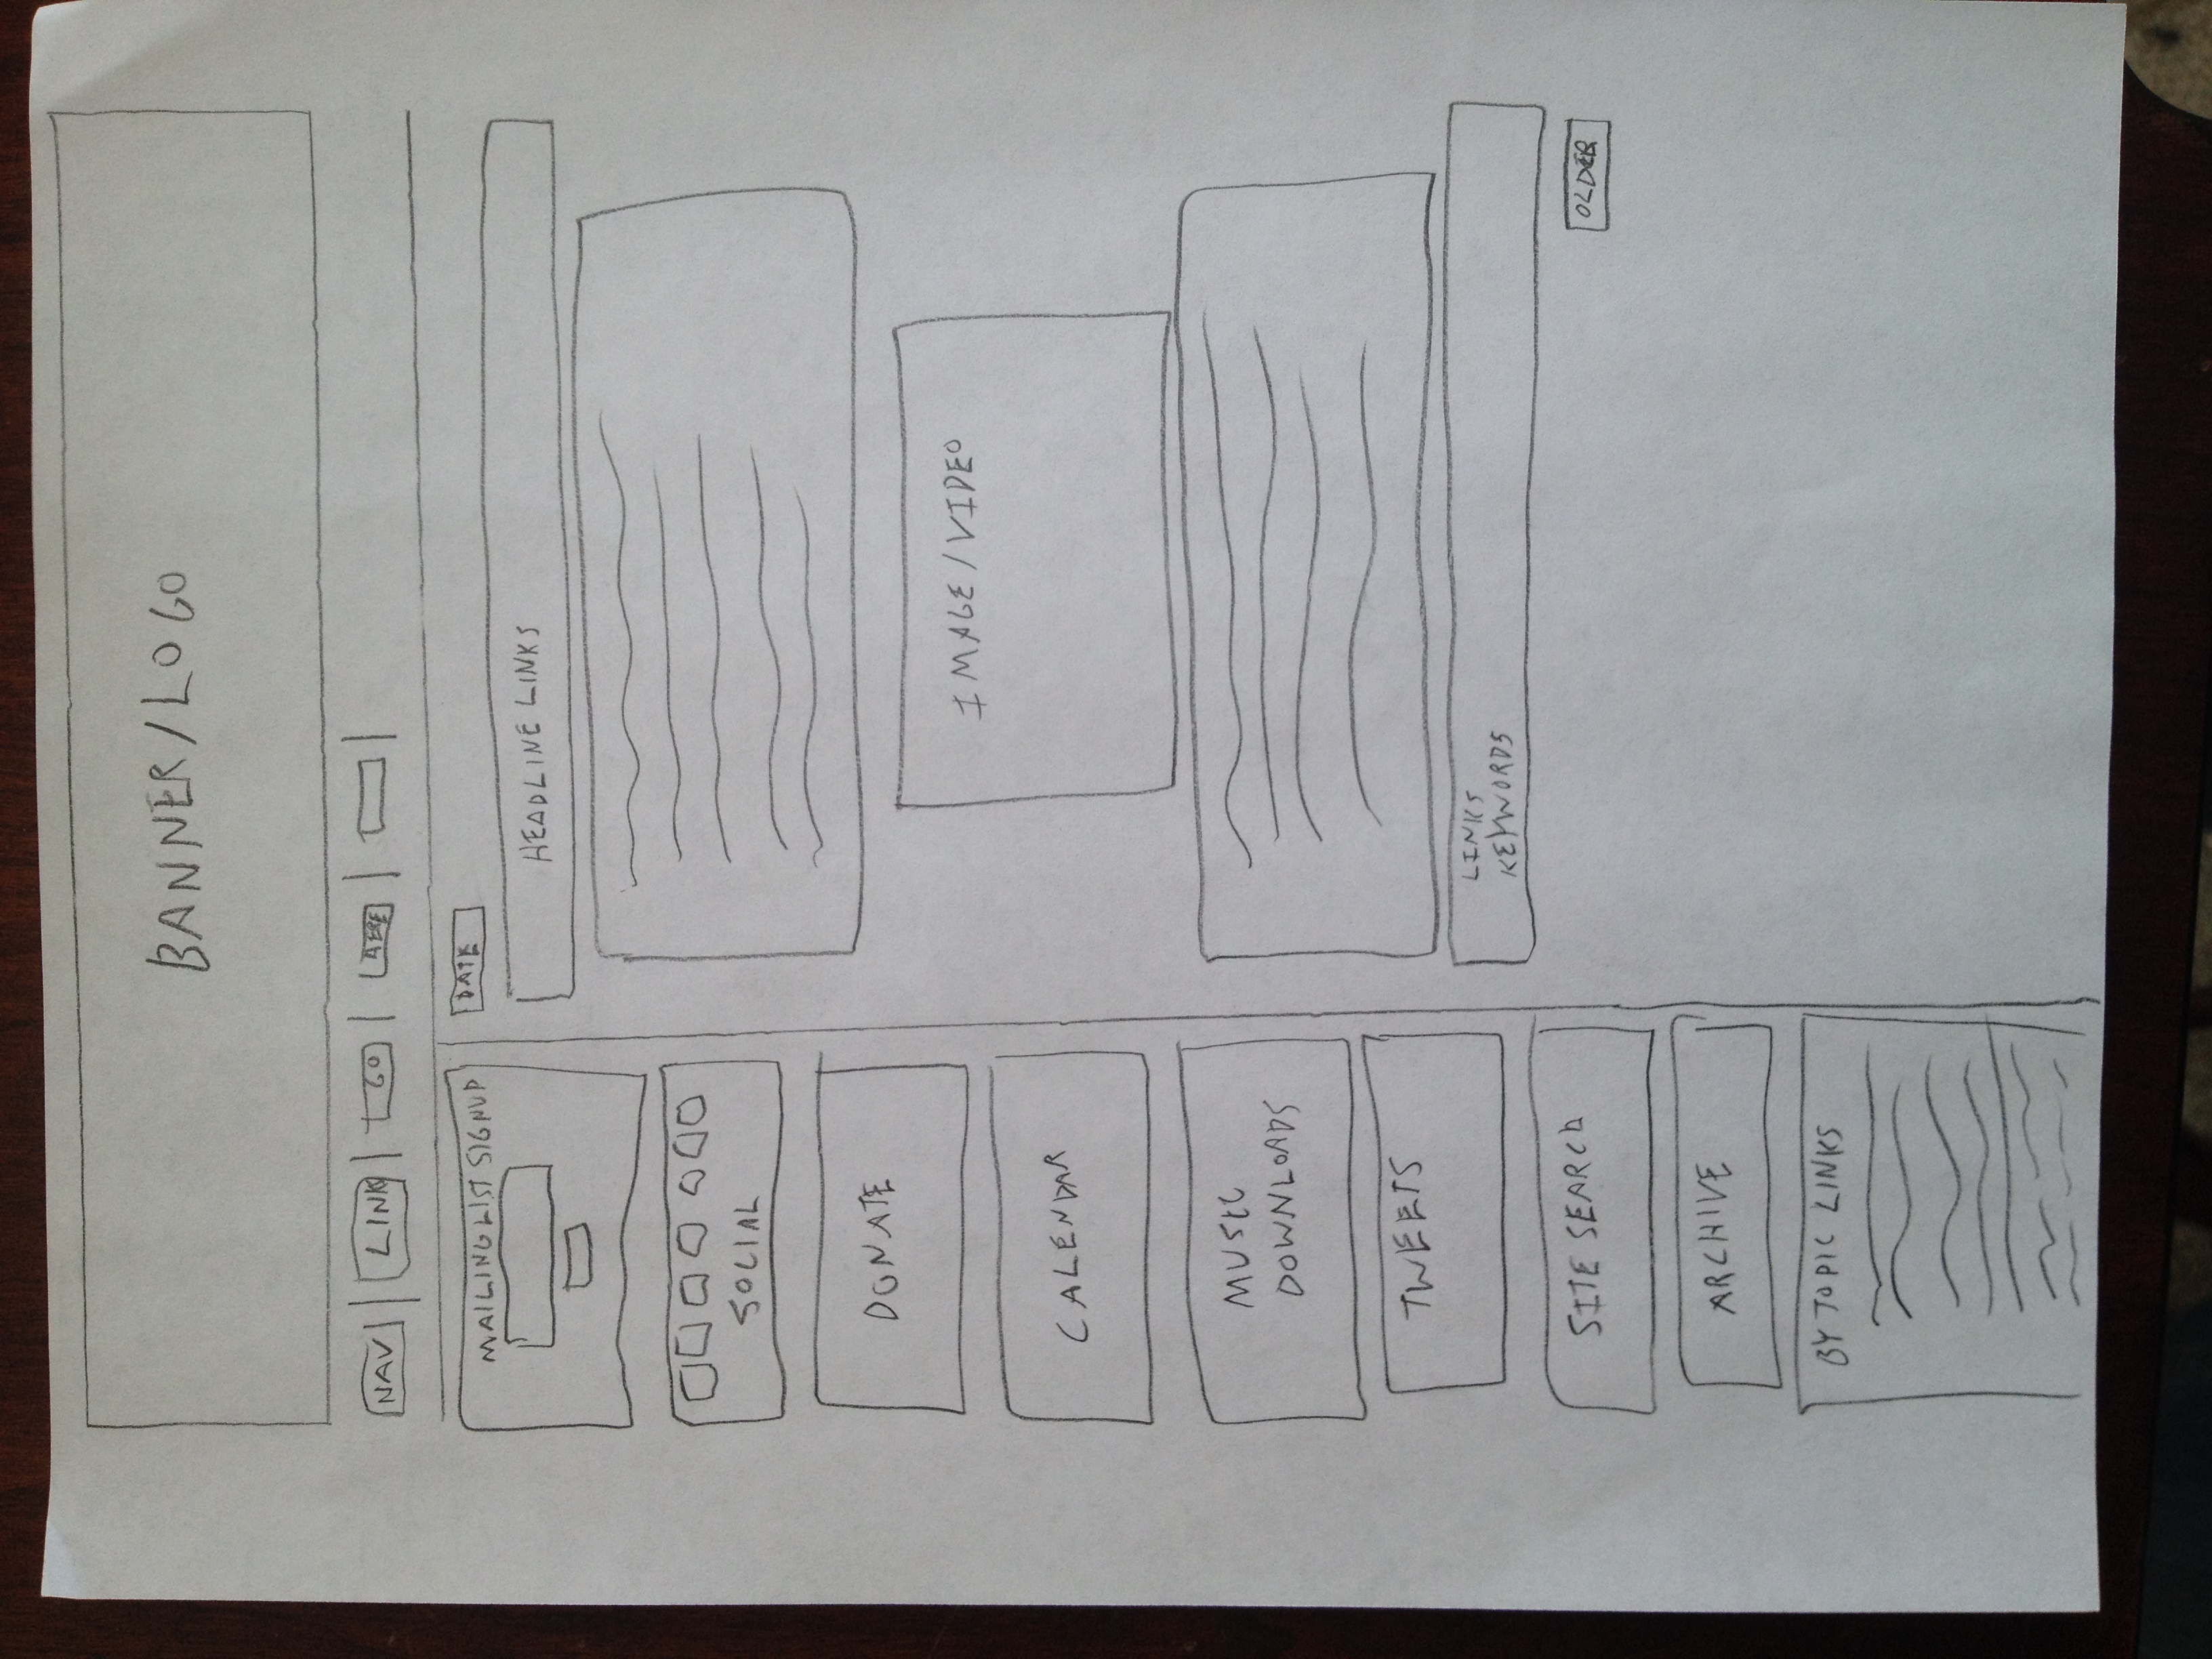 BANNER/LOGO
NAV
LINK
GO
HERE
MAILING LIST SIGNUP
SOCIAL
DONATE
CALENDAR
MUSIC
DOWNLOADS
TWEETS
SITE SEARCH
ARCHIVE
BY TOPIC LINKS
DATE
HEADLINE LINKS
IMAGE/VIDEO
LINKS
KEYWORDS
OLDER